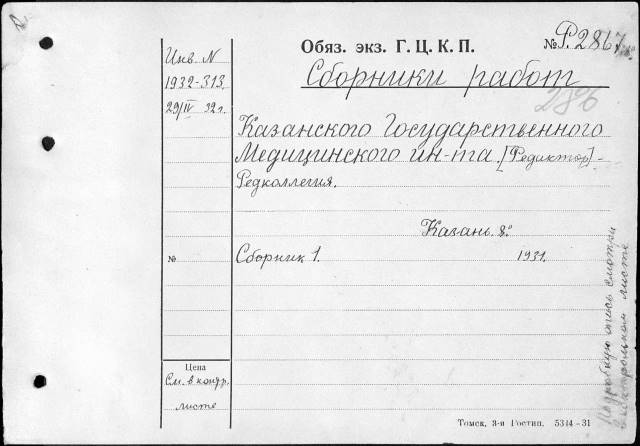 Обяз. экз. Г. Ц. К. П.
№ Р. 2867
Инв. N
1932-313
29/IV 32 г.
Сборники работ
286
Казанского Государственного
Медицинского ин-та. [Редактор] -
Редколлегия.
Казань. 8º
№
Сборник 1.
1931.
Цена
См. в контр.
листе
Подробную опись смотри
в контрольном листе
Томск, 3-я Гостип. 5344-31